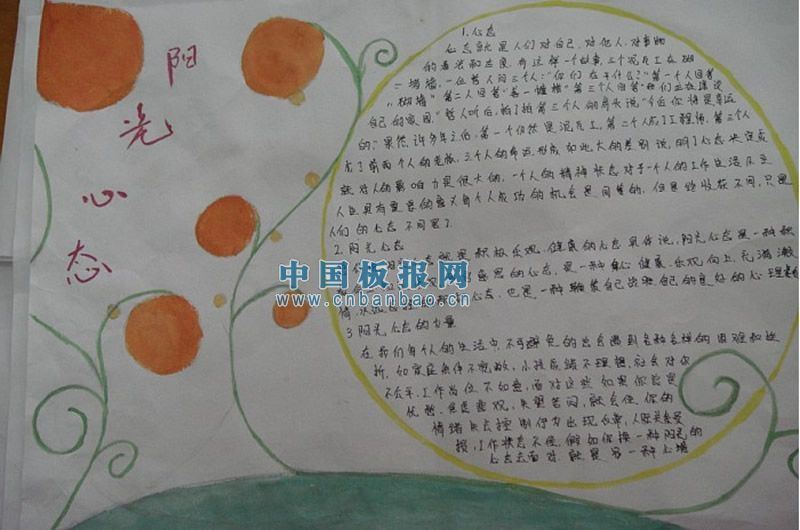 阳光心态
1.心态
心态就是人们对自己、对他人、对事物
的看法和态度。有这样一个故事,三个泥瓦工在砌
一堵墙,一位哲人问三个人:"你们在干什么?"第一个人回答
"砌墙"第二人回答"盖一幢楼"第三个人回答"我们正在建设
自己的家园"哲人听后,拍了拍第三个人的肩头说"今后你将是幸运
的"果然,许多年之后,第一个仍然是泥瓦工,第二个人成了工程师,第三个人
成了前两个人的老板,三个人的命运形成如此大的差别说明了心态决定成
就对人的影响力是很大的,一个人的精神状态对于一个人的工作生活乃至
人生具有重要的意义每个人成功的机会是同等的,但是些收获不同,只是
人们的心态不同罢了
2.阳光心态
心态就是积极、乐观、健康的心态具体说,阳光心态是一种积
感恩的心态,是一种身心健康、乐观向上、充满激
情、心态,也是一种自己的良好的心理
中国板报网
www.cnbanbao.cn
3.阳光心态的力量
在我们每个人的生活中,不可避免的出会遇到各种各样的困难和挫
折,如家庭条件不宽敞,小孩成绩不理想,社会对你
不公平,工作岗位不如意,面对这些如果你总是
忧愁、焦虑悲观,失望苦闷,就会使你的
情绪失去控制行为出现反常,人际关系受
损,工作状态不佳,假如你换一种阳光的
心态去面对,就是另一种心情